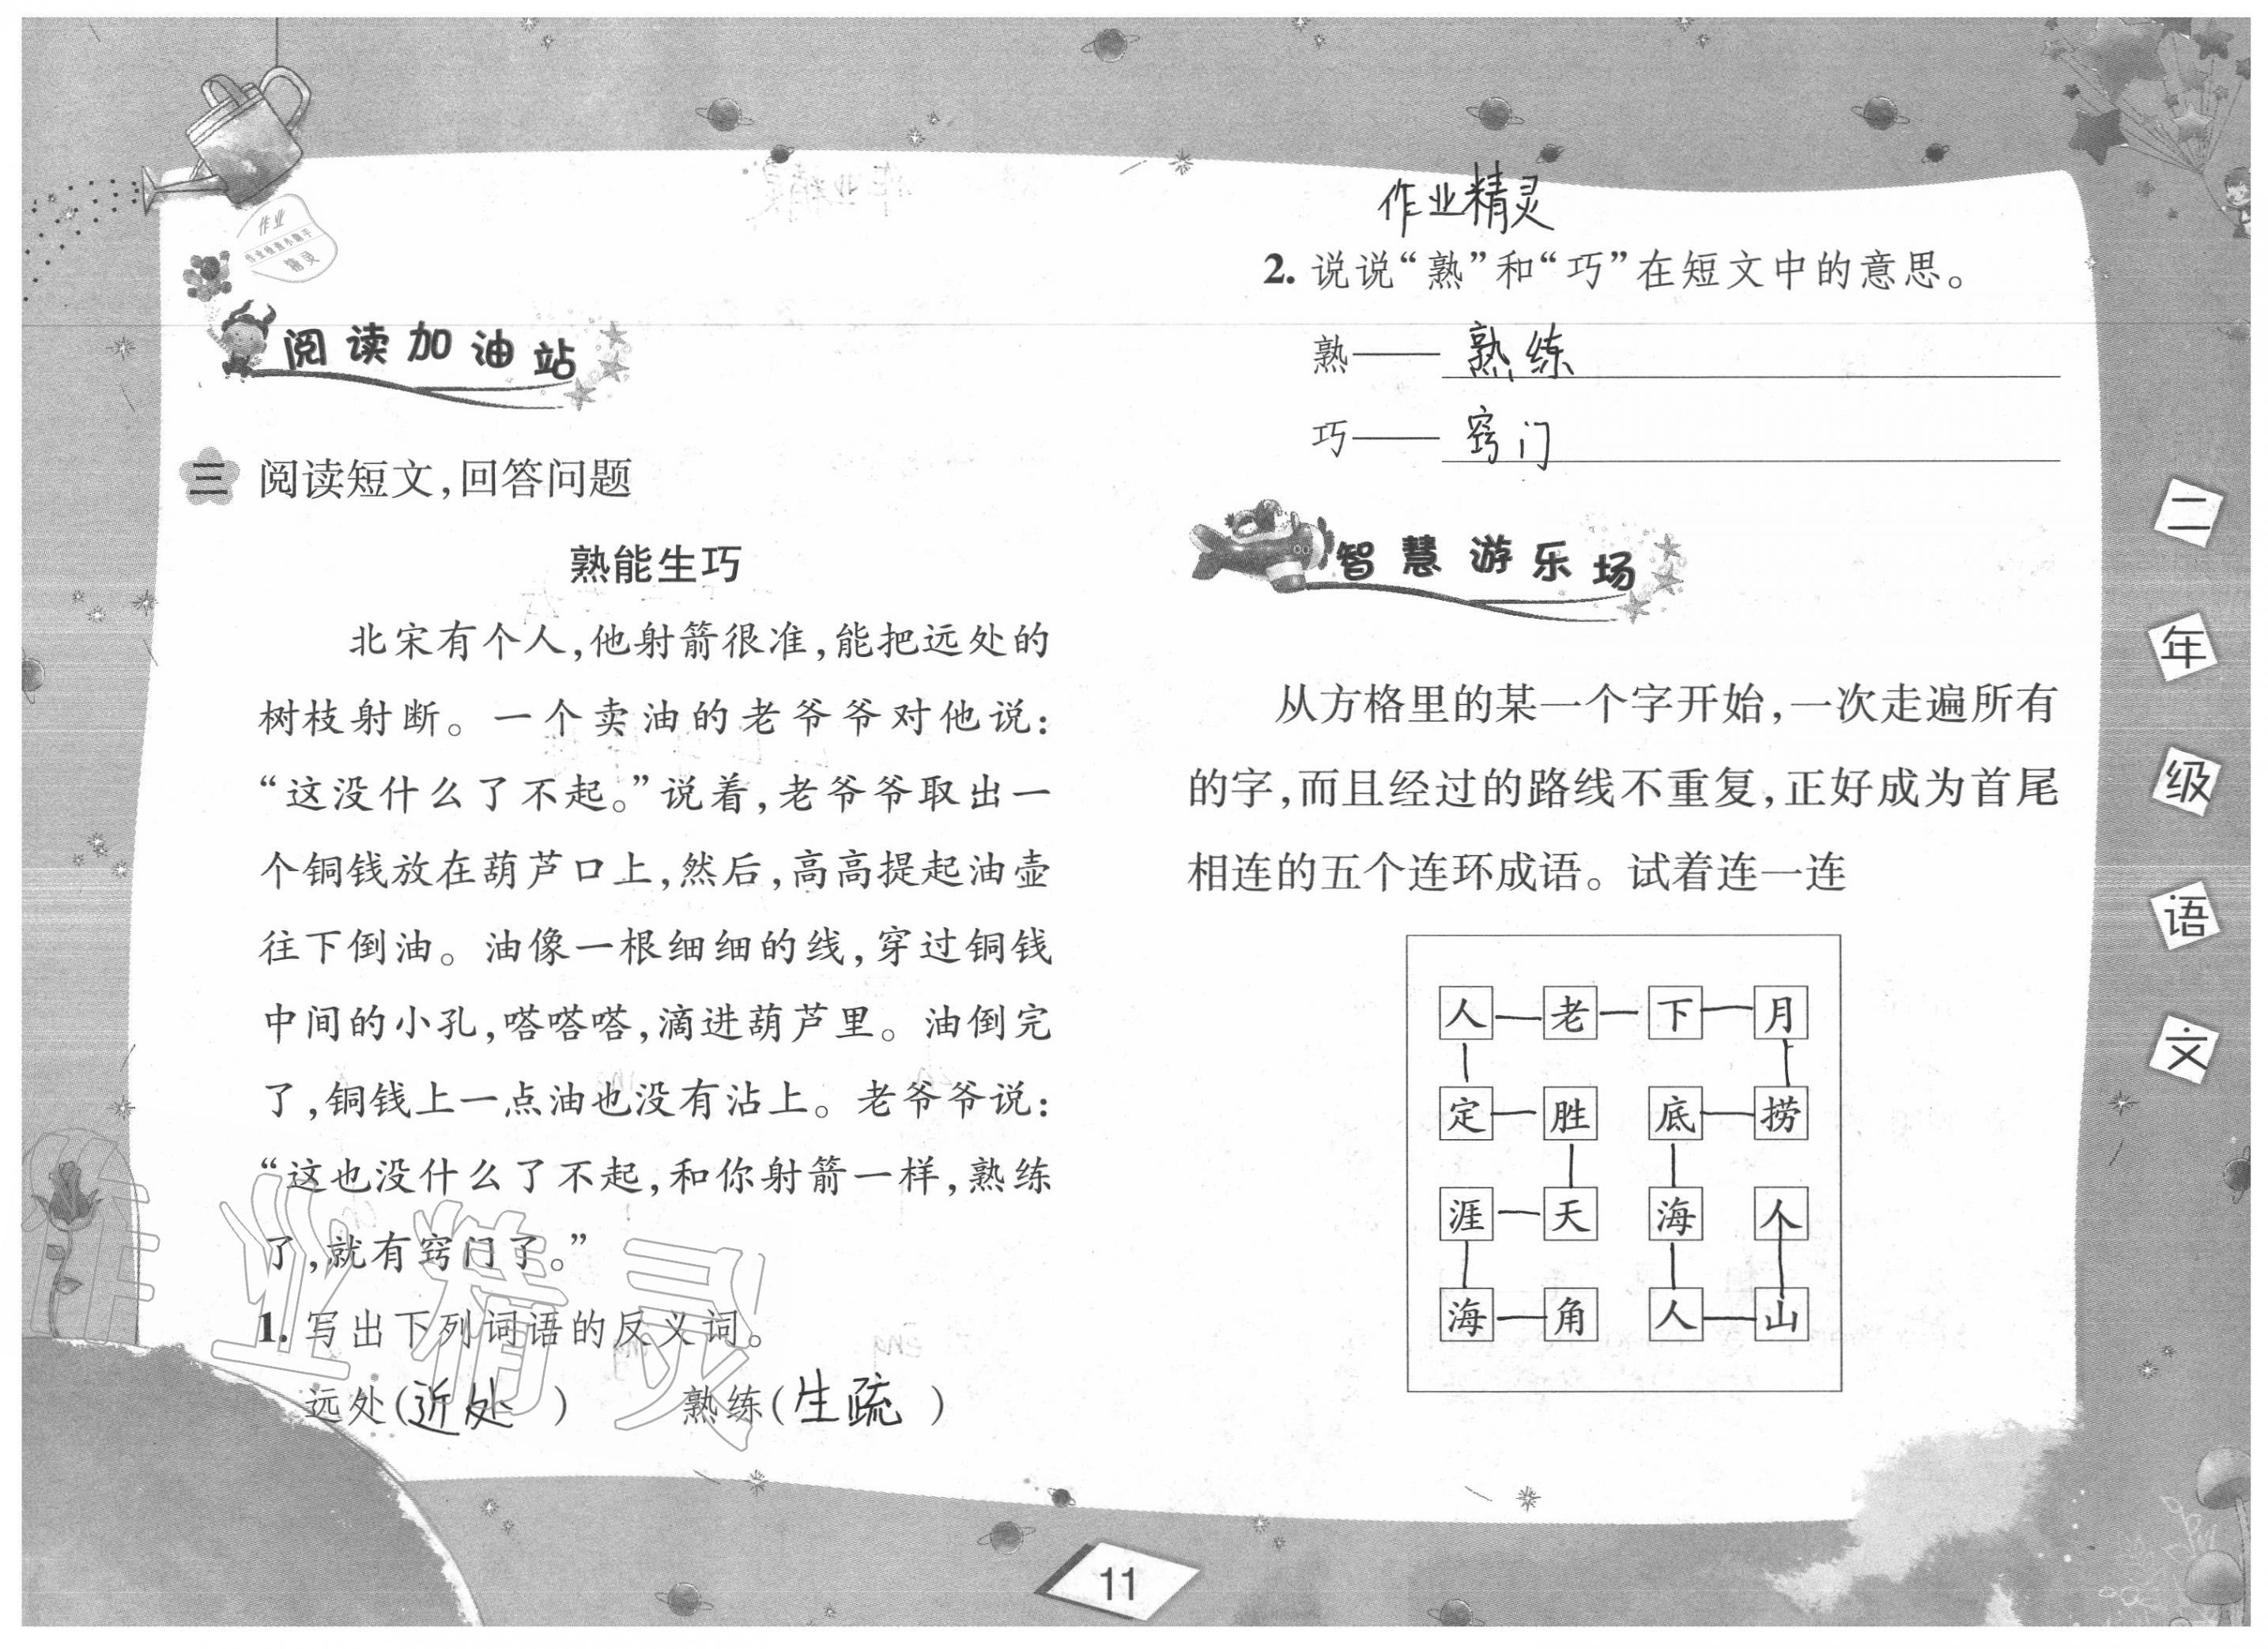 作业
作业检查小助手
精灵
阅读加油站
三 阅读短文，回答问题
熟能生巧
北宋有个人，他射箭很准，能把远处的
树枝射断。一个卖油的老爷爷对他说：
“这没什么了不起。”说着，老爷爷取出一
个铜钱放在葫芦口上，然后，高高提起油壶
往下倒油。油像一根细细的线，穿过铜钱
中间的小孔，嗒嗒嗒，滴进葫芦里。油倒完
了，铜钱上一点油也没有沾上。老爷爷说：
“这也没什么了不起，和你射箭一样，熟练
了，就有窍门了。”
1. 写出下列词语的反义词。
远处(近处) 熟练(生疏)
作业精灵
作业精灵
2. 说说“熟”和“巧”在短文中的意思。
熟——熟练
巧——窍门
智慧游乐场
从方格里的某一个字开始，一次走遍所有
的字，而且经过的路线不重复，正好成为首尾
相连的五个连环成语。试着连一连
人 老 下 月
定 胜 底 捞
涯 天 海 人
海 角 人 山
二年级语文
11